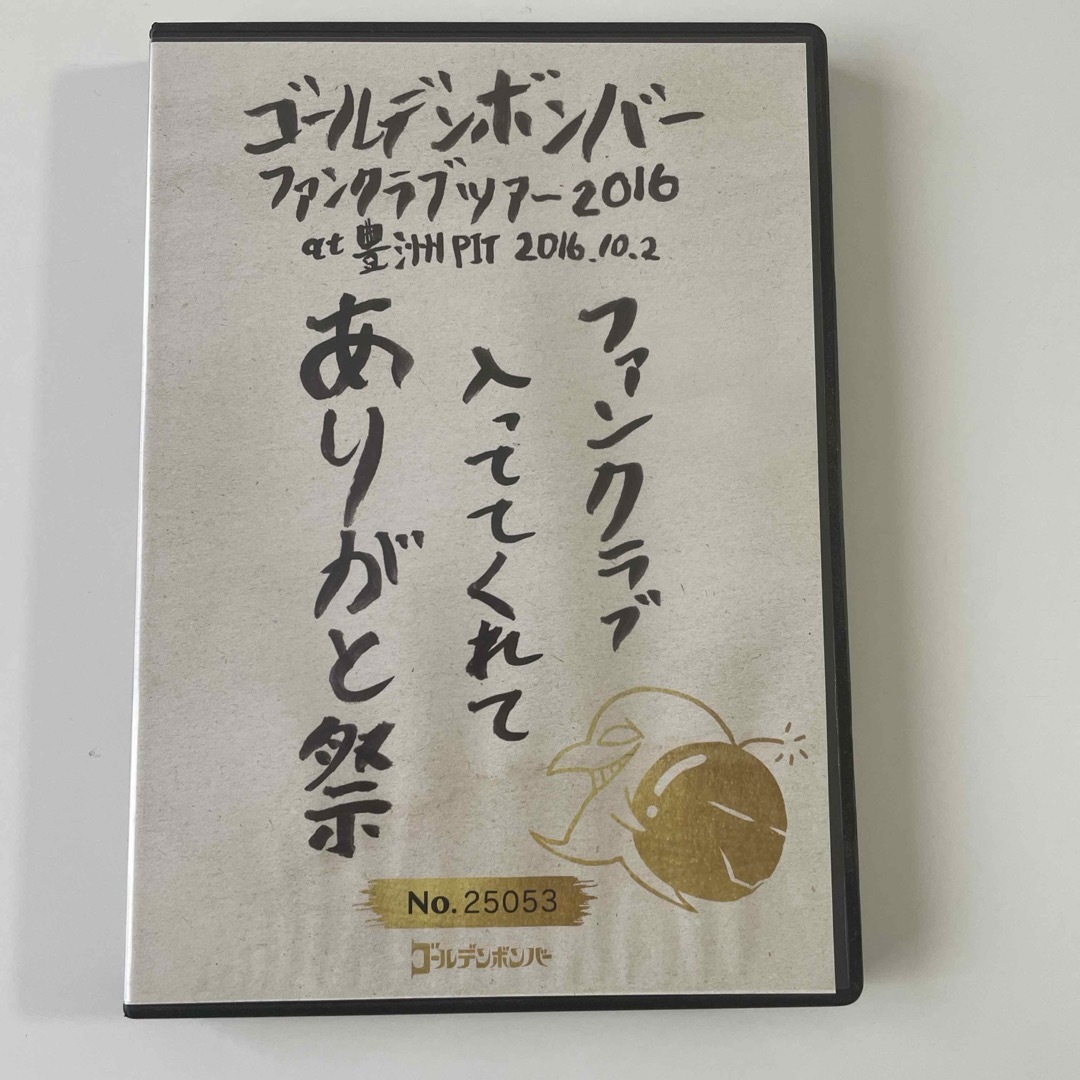 ゴールデンボンバー
ファンクラブツアー2016
at 豊洲PIT 2016.10.2
ファンクラブ
入っててくれて
ありがと祭
No. 25053
ゴールデンボンバー